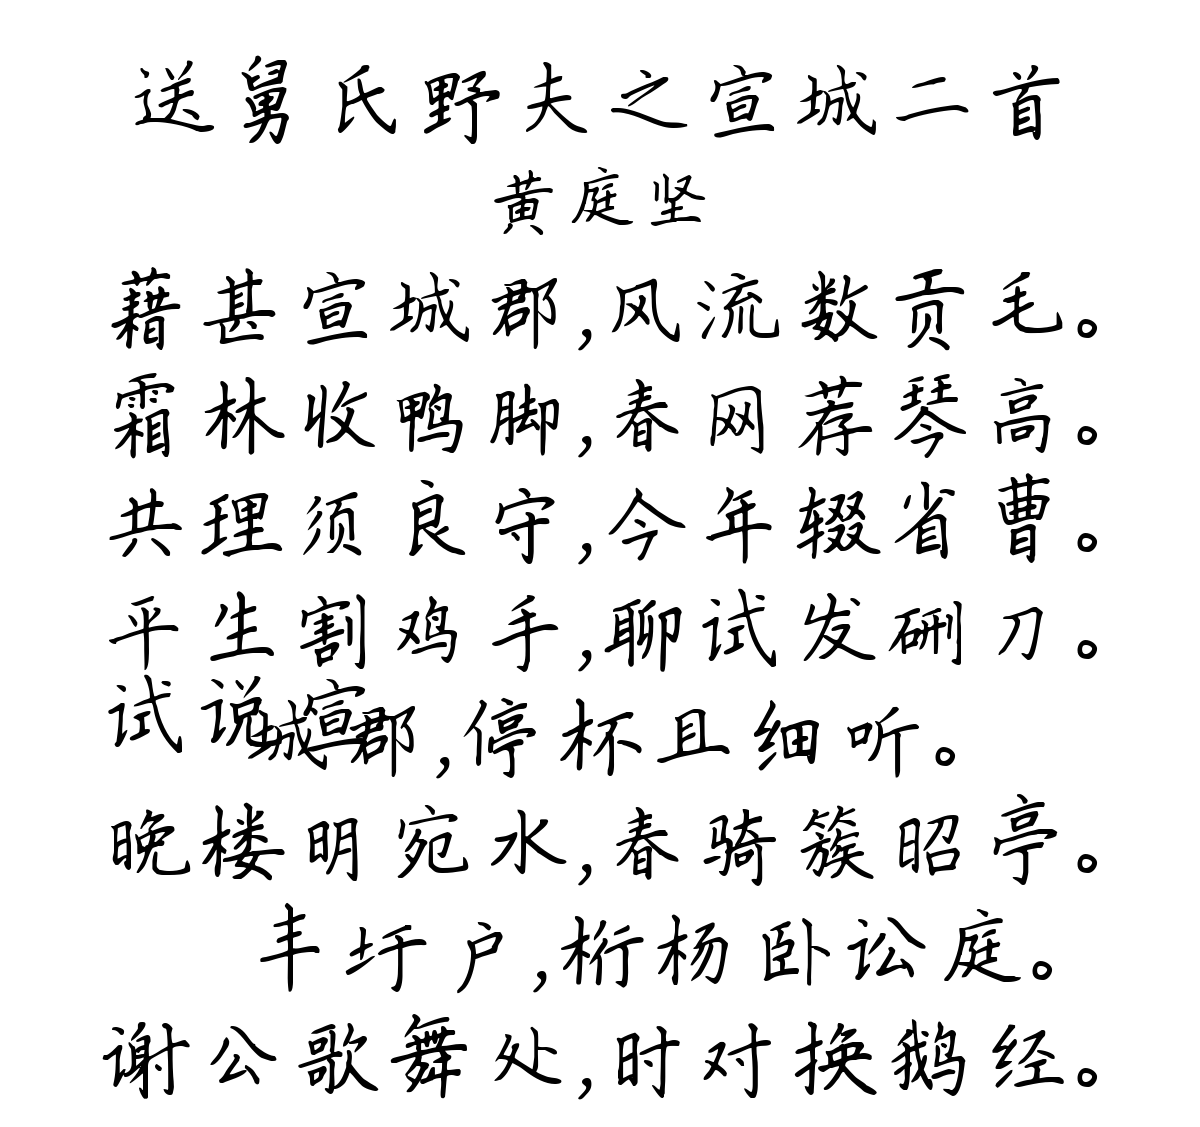 送舅氏野夫之宣城二首
黄庭坚
藉甚宣城郡,风流数贡毛。
霜林收鸭脚,春网荐琴高。
共理须良守,今年辍省曹。
平生割鸡手,聊试发硎刀。
试说宣城郡,停杯且细听。
晚楼明宛水,春骑簇昭亭。
丰圩户,桁杨卧讼庭。
谢公歌舞处,时对换鹅经。